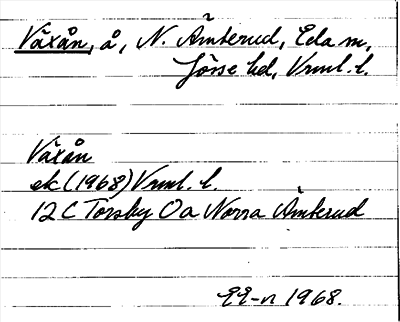 Växån, å, N. Ämterud, Eda sn,
Jösse hd, Vrml. l.
Växån
ek (1968) Vrml. l.
12 C Torsby Oa Norra Ämterud
1968.